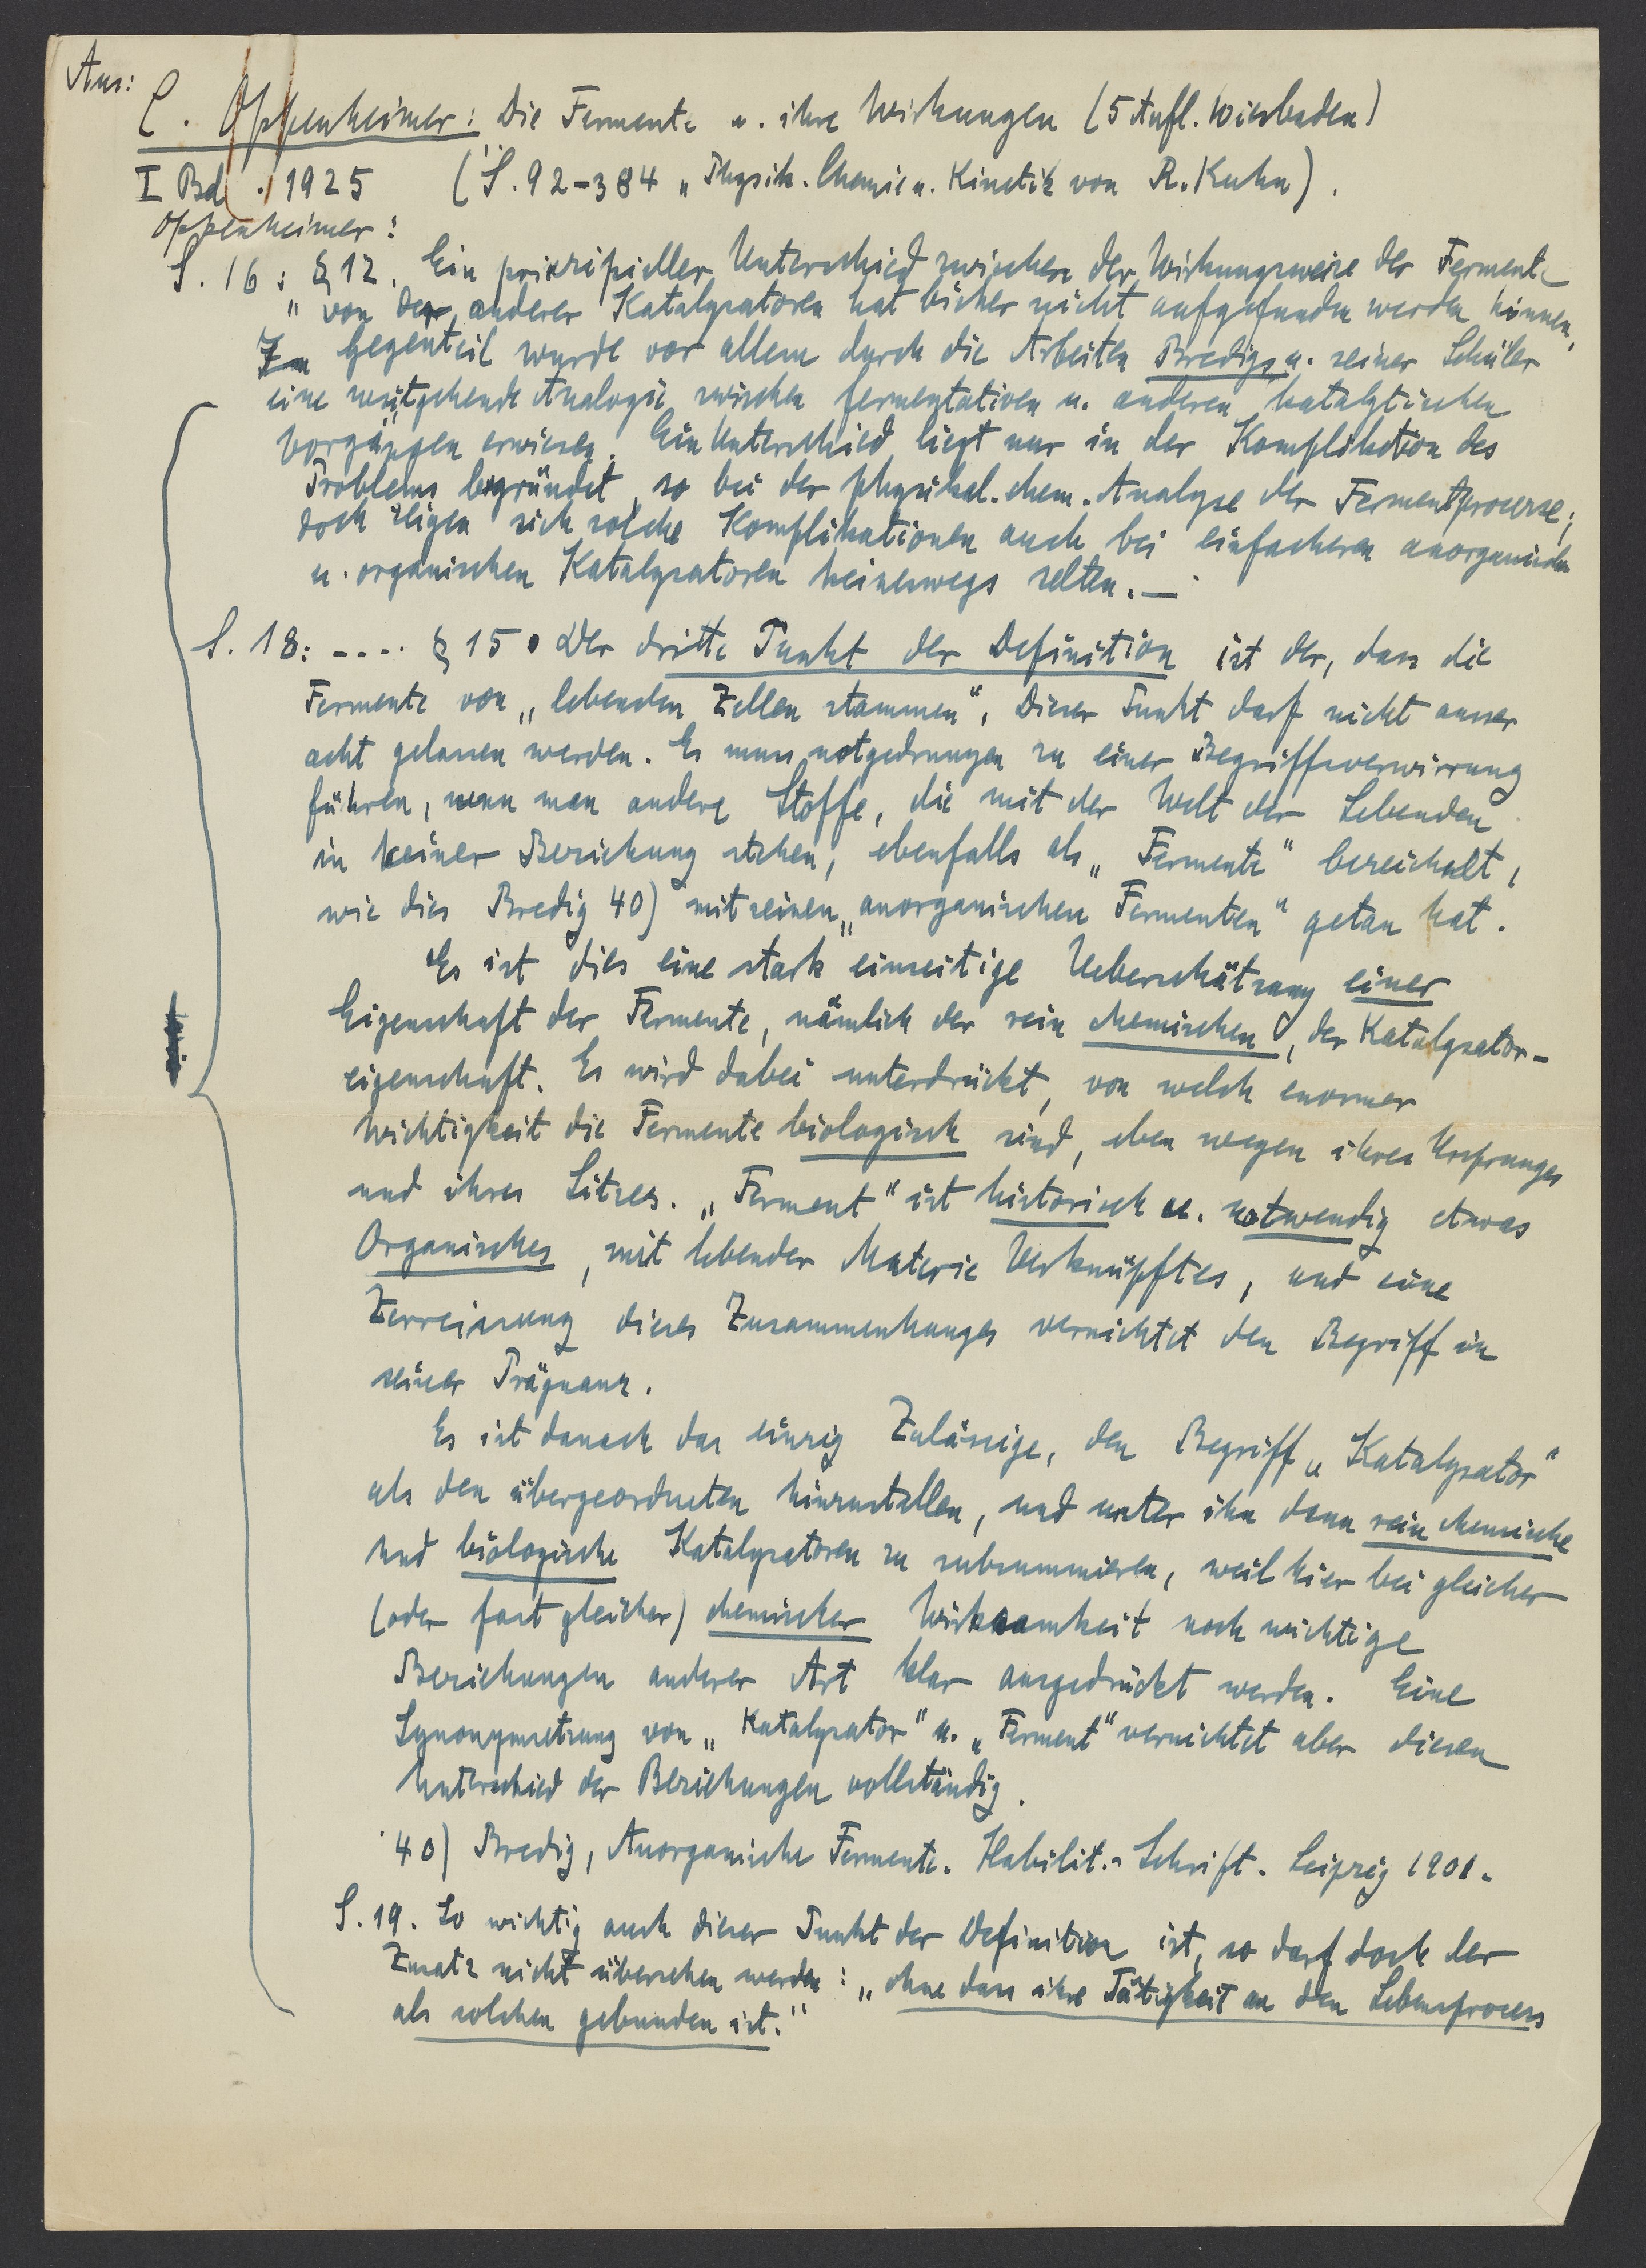 Aus:
C. Oppenheimer: Die Fermente u. ihre Wirkungen (5 Aufl. Wiesbaden)
I Bd. 1925 (S. 92-384 „Physik. Chemie u. Kinetik von R. Kuhn).
Oppenheimer:
S. 16: § 12. Ein prinzipieller Unterschied zwischen der Wirkungsweise der Fermente
" von der anderer Katalysatoren hat bisher nicht aufgefunden werden können,
Im Gegenteil wurde vor allem durch die Arbeiten Bredigs u. seiner Schüler
eine weitgehende Analogie zwischen fermentativen u. anderen katalytischen
Vorgängen erwiesen. Ein Unterschied liegt nur in der Komplikation des
Problems begründet, so bei der physikal. chem. Analyse der Fermentprozesse;
doch zeigen sich solche Komplikationen auch bei einfacheren anorganischen
u. organischen Katalysatoren keineswegs selten. —
S. 18: ---- § 15. Der dritte Punkt der Definition ist der, dass die
Fermente von „lebenden Zellen stammen". Dieser Punkt darf nicht ausser
acht gelassen werden. Es muss notgedrungen zu einer Begriffsverwirrung
führen, wenn man andere Stoffe, die mit der Welt der Lebenden
in keiner Beziehung stehen, ebenfalls als „Fermente" bezeichnet,
wie dies Bredig 40) mit seinen „anorganischen Fermenten" getan hat.
Es ist dies eine stark einseitige Ueberschätzung einer
Eigenschaft der Fermente, nämlich der rein chemischen, der Katalysator-
eigenschaft. Es wird dabei unterdrückt, von welch enormer
Wichtigkeit die Fermente biologisch sind, eben wegen ihres Ursprunges
und ihres Sitzes. „Ferment" ist historisch u. notwendig etwas
Organisches, mit lebender Materie Verknüpftes, und eine
Zerreissung dieses Zusammenhanges vernichtet den Begriff in
seiner Prägnanz.
Es ist danach das einzig Zulässige, den Begriff „Katalysator"
als den übergeordneten hinzustellen, und unter ihn dann rein chemische
und biologische Katalysatoren zu subsummieren, weil hier bei gleicher
(oder fast gleicher) chemischer Wirksamkeit noch wichtige
Beziehungen anderer Art klar ausgedrückt werden. Eine
Synonymsetzung von „Katalysator" u. „Ferment" vernichtet aber diesen
Unterschied der Beziehungen vollständig.
40) Bredig, Anorganische Fermente. Habilit.-Schrift. Leipzig 1901.
S. 19. So wichtig auch dieser Punkt der Definition ist, so darf doch der
Zusatz nicht übersehen werden: „ohne dass ihre Tätigkeit an den Lebensprocess
als solchen gebunden ist."